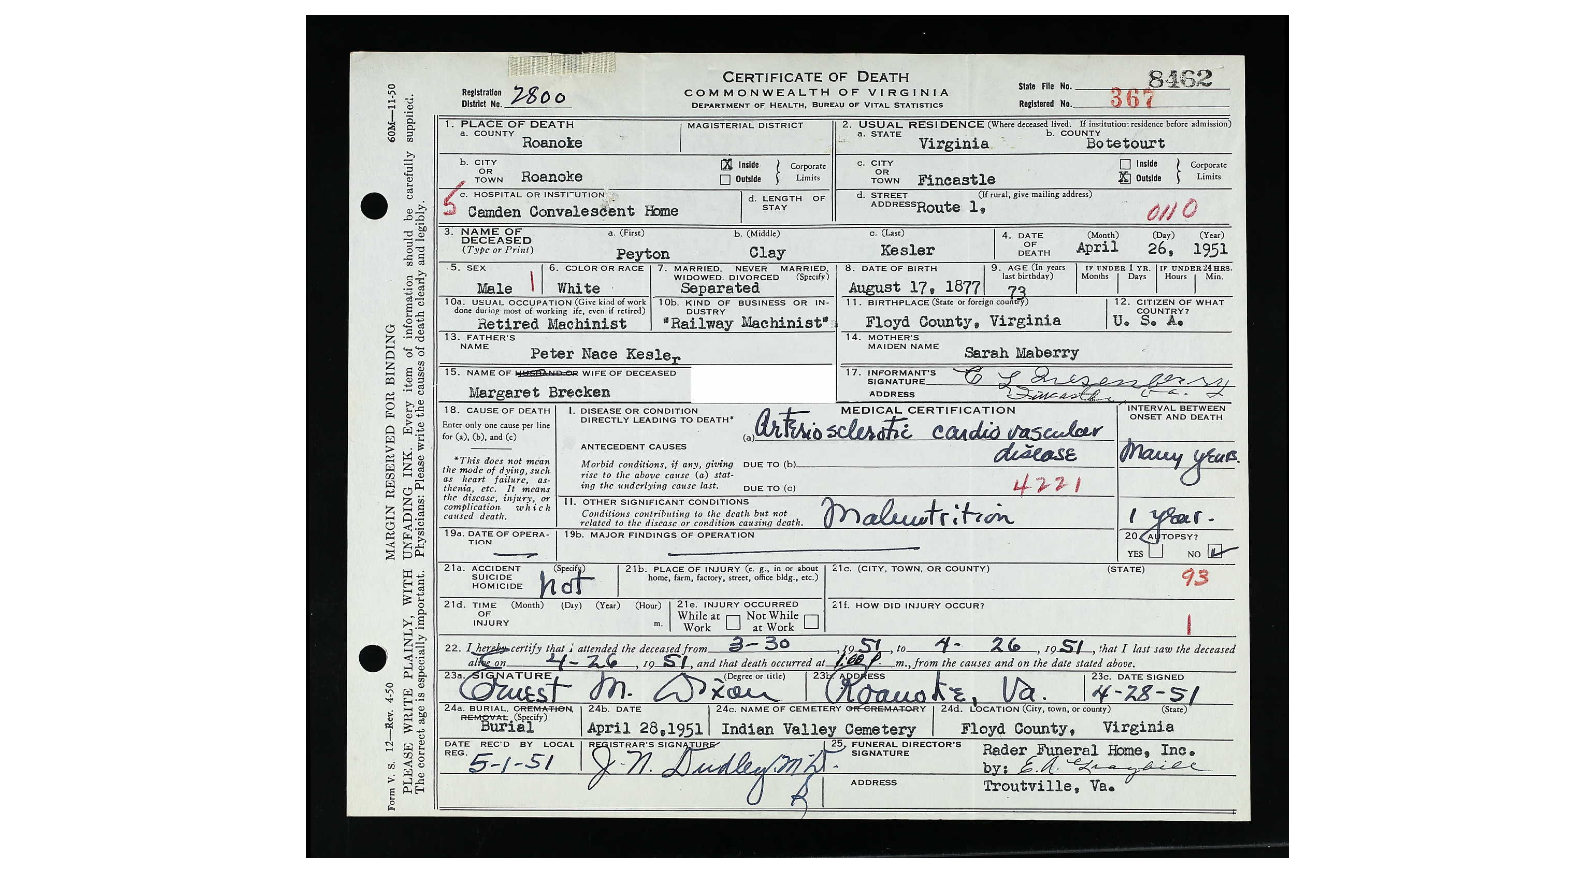 CERTIFICATE OF DEATH
COMMONWEALTH OF VIRGINIA
DEPARTMENT OF HEALTH, BUREAU OF VITAL STATISTICS
Registration District No. 2800
State File No. 8462
Registered No. 367
60M—11-50
MARGIN RESERVED FOR BINDING
Form V. S. 12—Rev. 4-50
PLEASE WRITE PLAINLY, WITH UNFADING INK. Every item of information should be carefully supplied.
The correct age is especially important. Physicians: Please write the causes of death clearly and legibly.
1. PLACE OF DEATH
a. COUNTY Roanoke
MAGISTERIAL DISTRICT
2. USUAL RESIDENCE (Where deceased lived. If institution: residence before admission)
a. STATE Virginia
b. COUNTY Botetourt
b. CITY OR TOWN Roanoke
X Inside Outside Corporate Limits
c. CITY OR TOWN Fincastle
Inside X Outside Corporate Limits
5
c. HOSPITAL OR INSTITUTION Camden Convalescent Home
d. LENGTH OF STAY
d. STREET ADDRESS (If rural, give mailing address) Route 1,
0110
3. NAME OF DECEASED (Type or Print)
a. (First) Peyton
b. (Middle) Clay
c. (Last) Kesler
4. DATE OF DEATH (Month) (Day) (Year) April 26, 1951
5. SEX Male
1
6. COLOR OR RACE White
7. MARRIED, NEVER MARRIED, WIDOWED, DIVORCED (Specify) Separated
8. DATE OF BIRTH August 17, 1877
9. AGE (In years last birthday) 73
IF UNDER 1 YR. Months Days
IF UNDER 24 HRS. Hours Min.
10a. USUAL OCCUPATION (Give kind of work done during most of working life, even if retired) Retired Machinist
10b. KIND OF BUSINESS OR INDUSTRY "Railway Machinist"
11. BIRTHPLACE (State or foreign country) Floyd County, Virginia
12. CITIZEN OF WHAT COUNTRY? U. S. A.
13. FATHER'S NAME Peter Nace Kesler
14. MOTHER'S MAIDEN NAME Sarah Maberry
15. NAME OF HUSBAND OR WIFE OF DECEASED Margaret Brecken
17. INFORMANT'S SIGNATURE
ADDRESS Fincastle, Va.
18. CAUSE OF DEATH
Enter only one cause per line for (a), (b), and (c)
*This does not mean the mode of dying, such as heart failure, asthenia, etc. It means the disease, injury, or complication which caused death.
MEDICAL CERTIFICATION
I. DISEASE OR CONDITION DIRECTLY LEADING TO DEATH*
(a) Arteriosclerotic cardio vascular disease
INTERVAL BETWEEN ONSET AND DEATH
Many years.
ANTECEDENT CAUSES
Morbid conditions, if any, giving rise to the above cause (a) stating the underlying cause last.
DUE TO (b)
DUE TO (c)
4221
II. OTHER SIGNIFICANT CONDITIONS
Conditions contributing to the death but not related to the disease or condition causing death.
Malnutrition
1 year.
19a. DATE OF OPERATION
19b. MAJOR FINDINGS OF OPERATION
20. AUTOPSY?
YES NO
21a. ACCIDENT SUICIDE HOMICIDE (Specify) not
21b. PLACE OF INJURY (e. g., in or about home, farm, factory, street, office bldg., etc.)
21c. (CITY, TOWN, OR COUNTY) (STATE)
93
21d. TIME OF INJURY (Month) (Day) (Year) (Hour) m.
21e. INJURY OCCURRED While at Work Not While at Work
21f. HOW DID INJURY OCCUR?
1
22. I hereby certify that I attended the deceased from 3-30, 1951, to 4-26, 1951, that I last saw the deceased
alive on 4-26, 1951, and that death occurred at 1:00 P m., from the causes and on the date stated above.
23a. SIGNATURE (Degree or title) Ernest M. Dixon
23b. ADDRESS Roanoke, Va.
23c. DATE SIGNED 4-28-51
24a. BURIAL, CREMATION, REMOVAL (Specify) Burial
24b. DATE April 28, 1951
24c. NAME OF CEMETERY OR CREMATORY Indian Valley Cemetery
24d. LOCATION (City, town, or county) (State) Floyd County, Virginia
DATE REC'D BY LOCAL REG. 5-1-51
REGISTRAR'S SIGNATURE J. N. Dudley, M.D.
25. FUNERAL DIRECTOR'S SIGNATURE Rader Funeral Home, Inc.
by: E.A. Graybill
ADDRESS Troutville, Va.